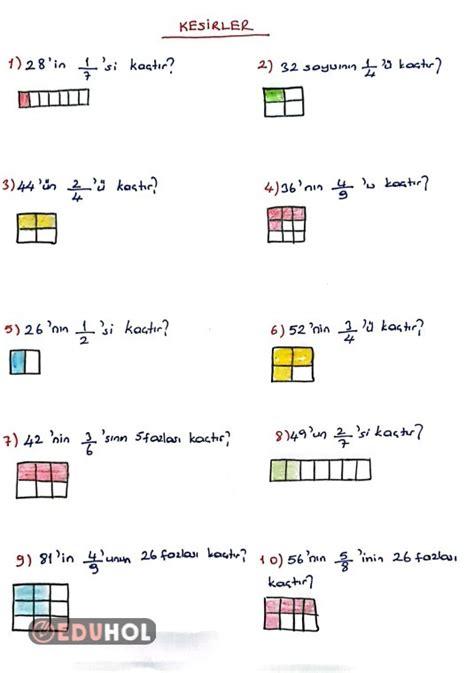 KESİRLER
1) 28'in 1/7 'si kaçtır?
2) 32 sayısının 1/4 'ü kaçtır?
3) 44'ün 2/4 'ü kaçtır?
4) 36'nın 4/9 'u kaçtır?
5) 26'nın 1/2 'si kaçtır?
6) 52'nin 3/4 'ü kaçtır?
7) 42'nin 3/6 'sının 5 fazlası kaçtır?
8) 49'un 2/7 'si kaçtır?
9) 81'in 4/9 'unun 26 fazlası kaçtır?
10) 56'nın 5/8 'inin 26 fazlası
kaçtır?
EDUHOL